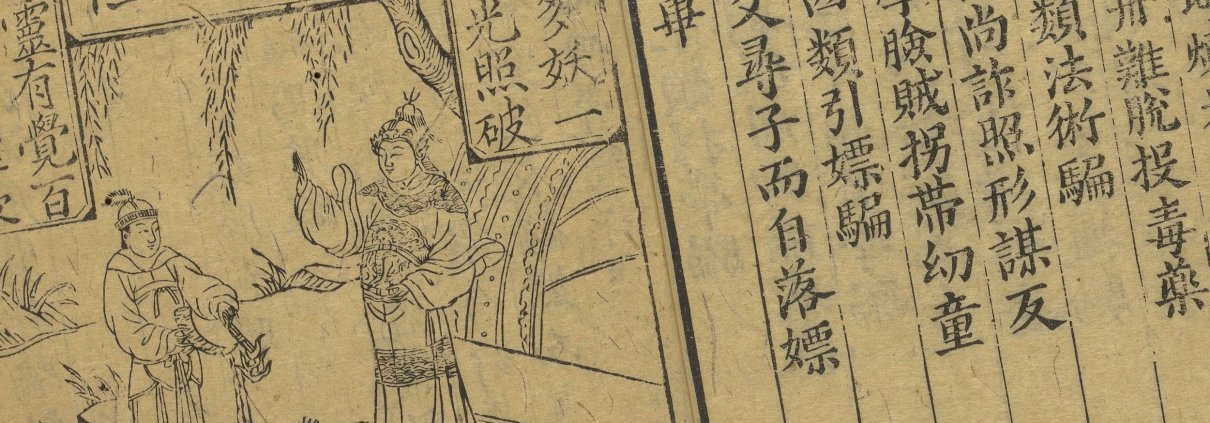 丹難脫投毒藥
類法術騙
尚詐照形謀反
臉賊拐帶幼童
類引嫖騙
父尋子而自落嫖
畢
妖一
光照破
覺百
靈有